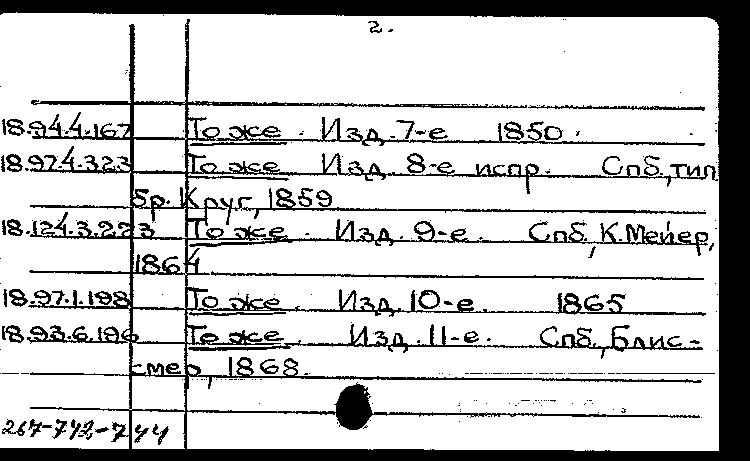 2.
18.94.4.167 То же. Изд. 7-е 1850.
18.974.323 То же Изд. 8-е испр. Спб., тип
бр. Круг, 1859
18.124.3.223 То же. Изд. 9-е. Спб., К. Мейер,
1864
18.97.1.198 То же. Изд. 10-е. 1865
18.93.6.196 То же. Изд. 11-е. Спб., Блис-
смер, 1868.
267-742-744